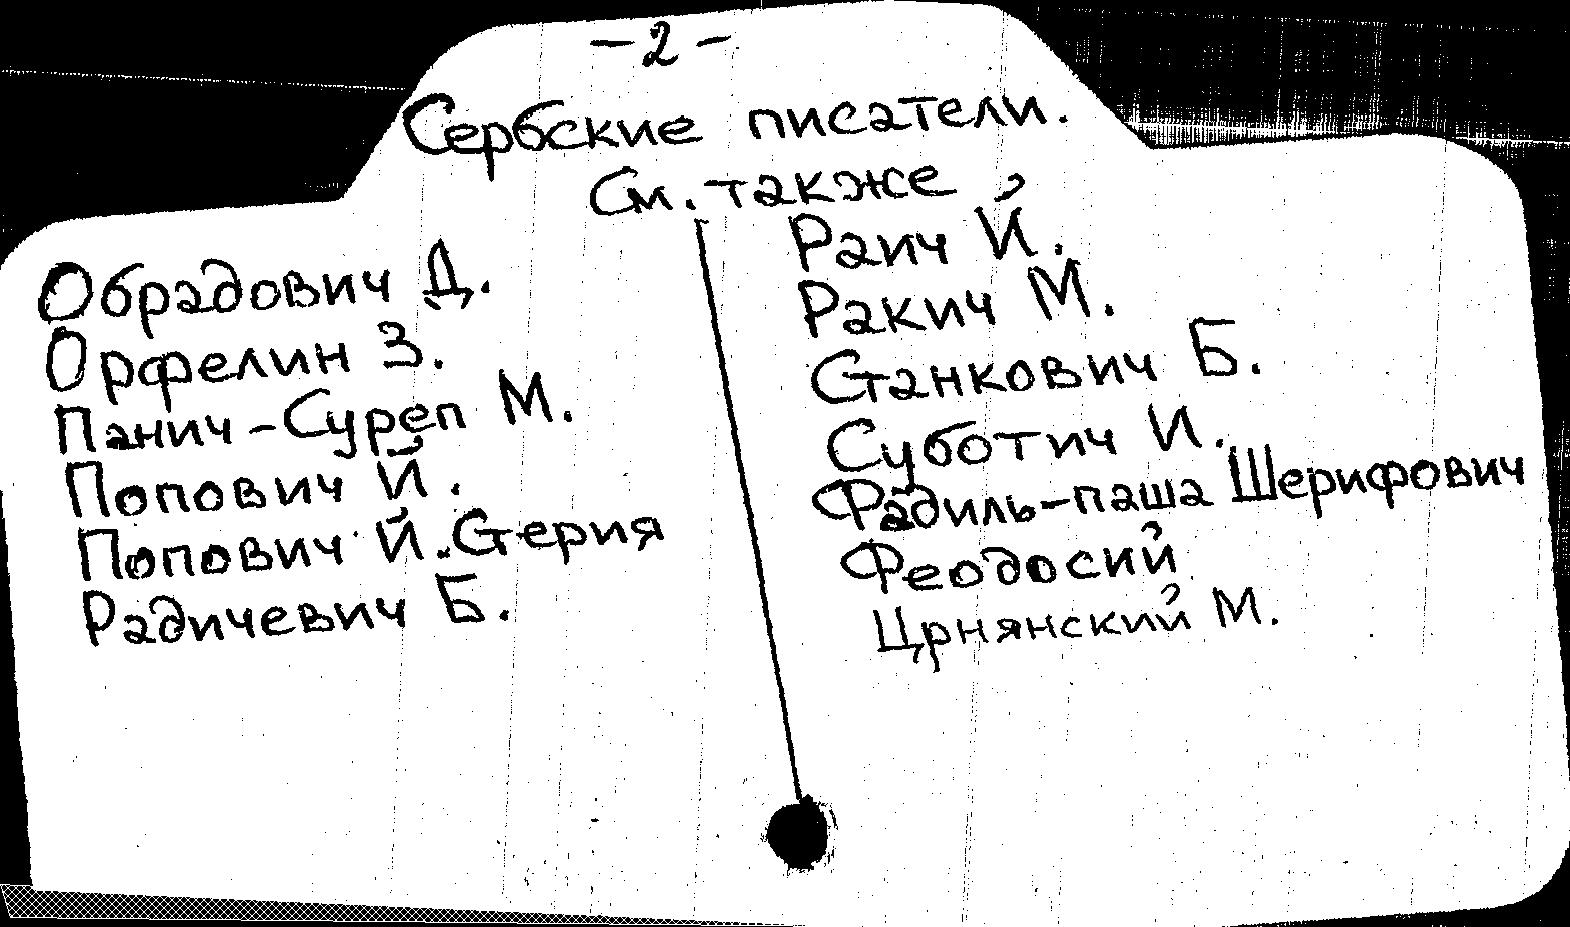 -2-
Сербские писатели.
См. также
Обрадович Д.
Орфелин З.
Панич-Суреп М.
Попович Й.
Попович Й. Стерия
Радичевич Б.
Раич Й.
Ракич М.
Станкович Б.
Суботич И.
Фадиль-паша Шерифович
Феодосий
Црнянский М.